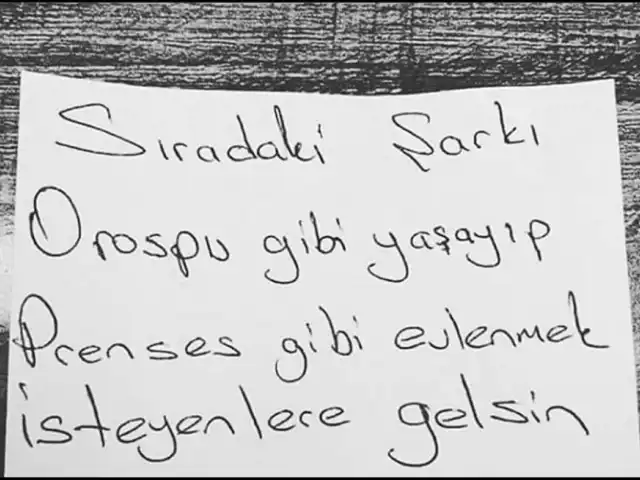 Sıradaki Şarkı
Orospu gibi yaşayıp
Prenses gibi evlenmek
isteyenlere gelsin